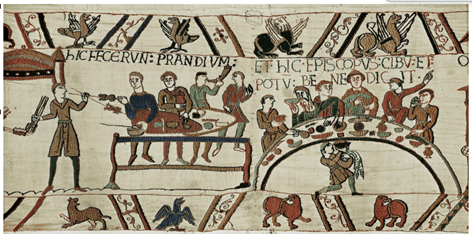 HIC FECERVN: PRANDIVM:
ET·HIC·EPISCOPVS:CIBV:ET·
POTV: BE NE DIC IT·